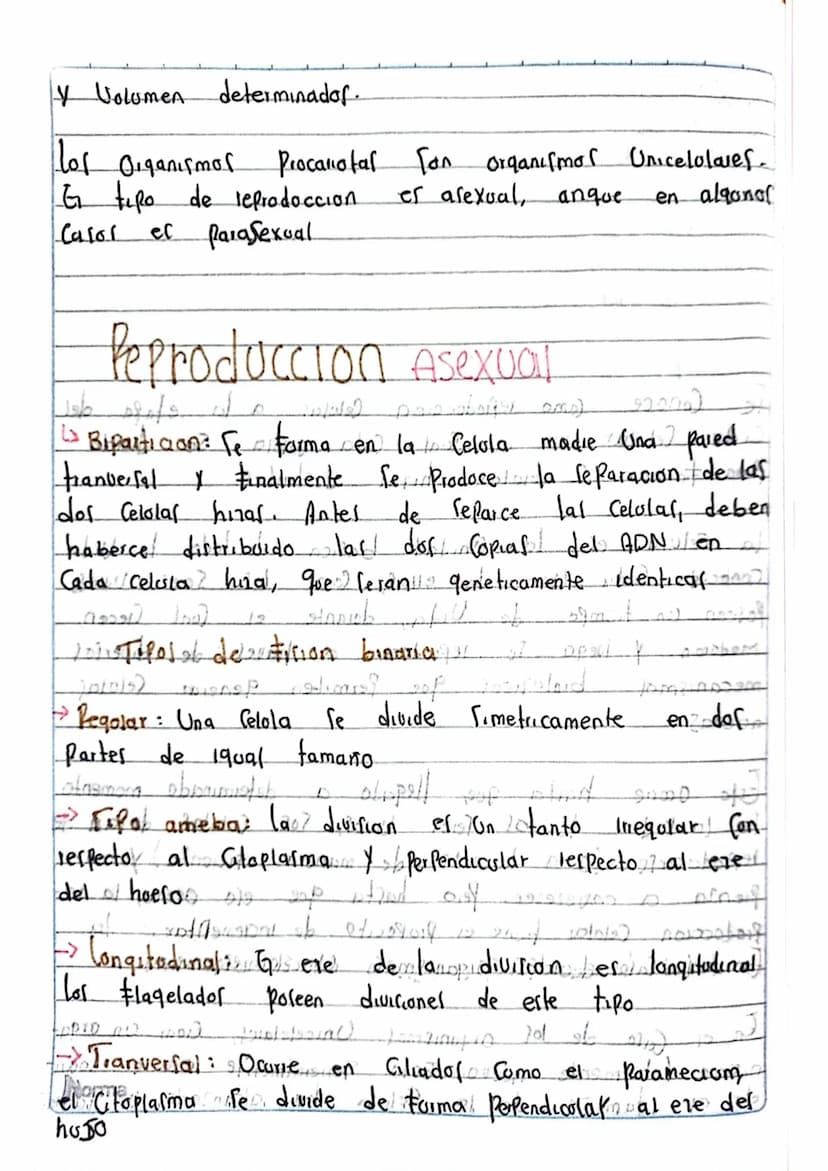 y Volumen determinados.
los organismos Procariotas son organismos Unicelolares.
El tipo de reprodoccion es asexual, anque en algonos
Casos es ParaSexual
Reproduccion Asexual
↳ Biparticion: Se forma en la Celola madre Una pared
tranversal y finalmente Se Prodoce la separacion de las
dos Celolas hijas. Antes de Separce las Celolas, deben
haberce distribuido las dos Copias del ADN en
Cada Celula hija, que serán geneticamente identicas
Tipos de fision binaria
→ Regolar: Una Celola Se divide Simetricamente en dos
Partes de igual tamaño
→ Tipo ameba: la division es Un tanto irregolar Con
respecto al Citoplasma y perpendicular respecto al eje
del hoeso
→ Longitodinal: El eje de la division es longitudinal
los flagelados poseen divisiones de este tipo
→ Tranversal: Ocurre en Ciliados Como el paramecium,
el Citoplasma se divide de forma Perpendicolar al eje del
huso
Norma